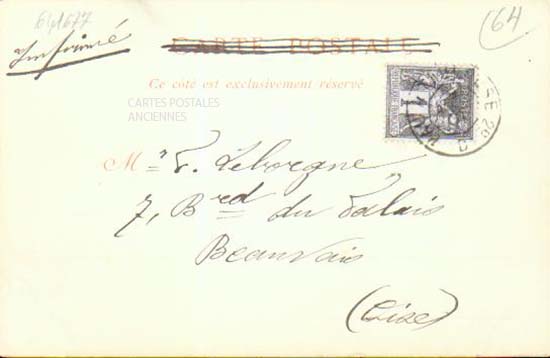 641677
(64
Imprimé
CARTE POSTALE
Ce côté est exclusivement réservé
CARTES POSTALES
ANCIENNES
M
Leborgne
7, Brd du Palais
Beauvais
(Oise)